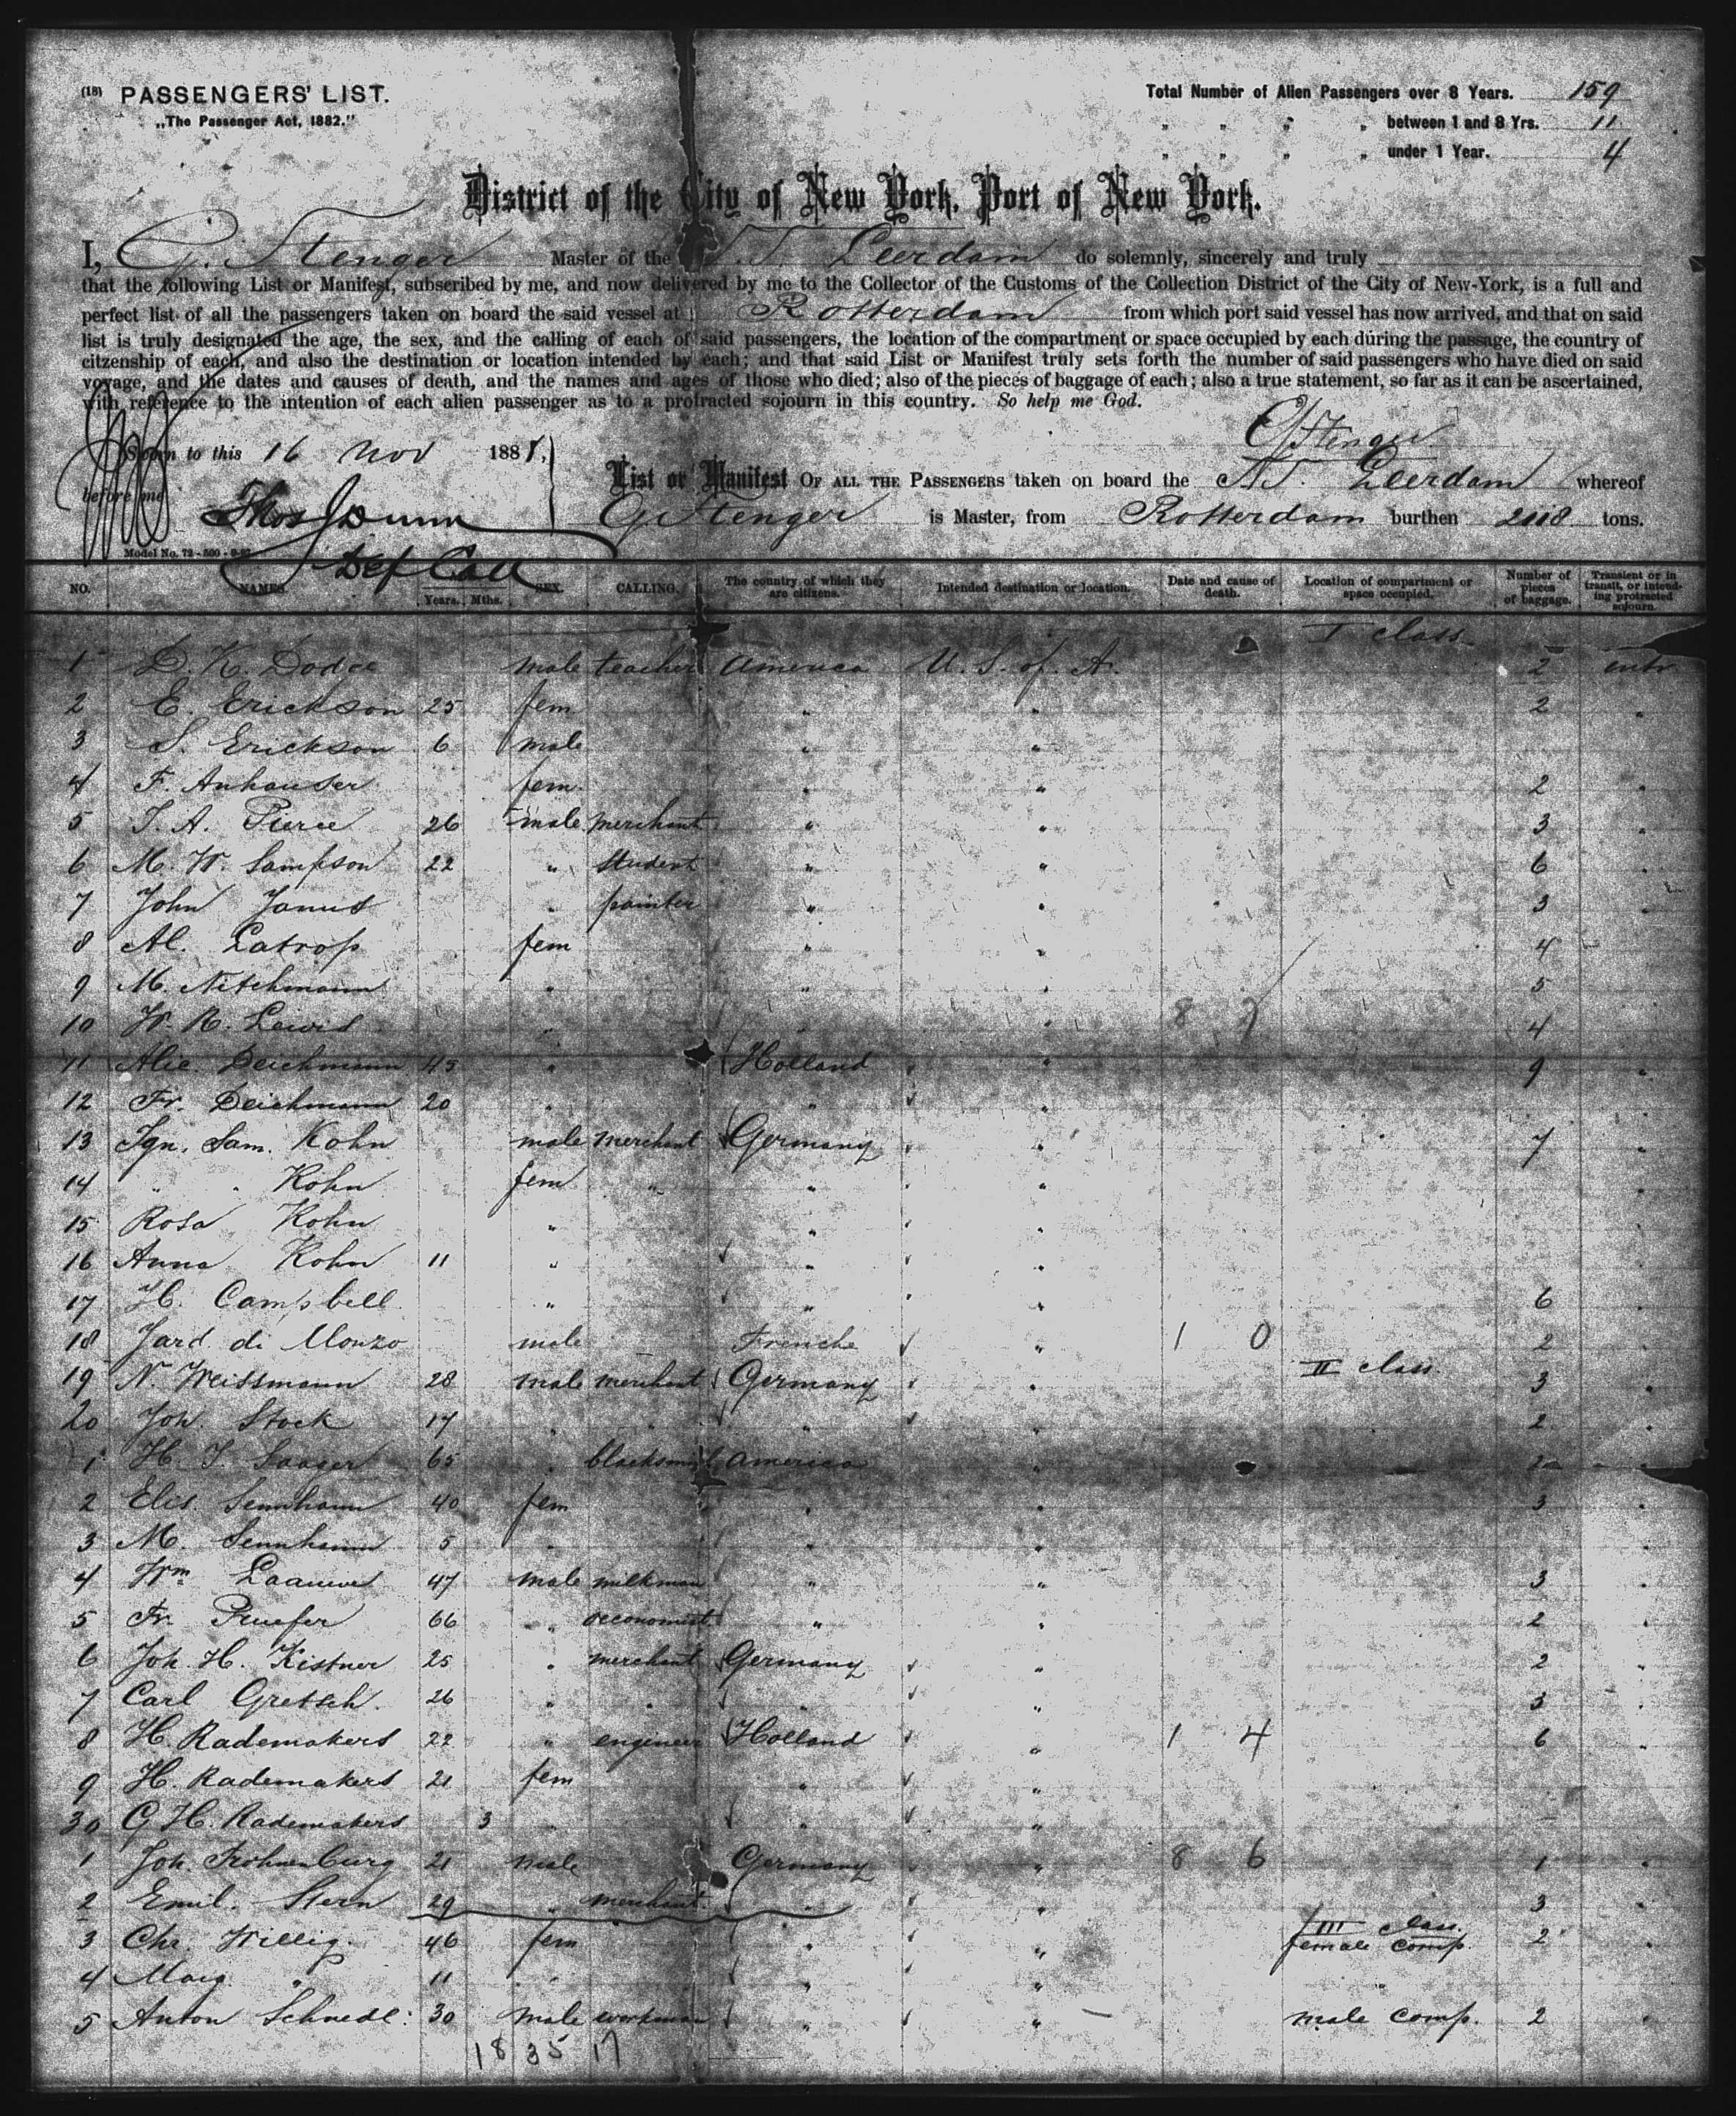 (18) PASSENGERS' LIST.
„The Passenger Act, 1882."
Total Number of Alien Passengers over 8 Years. 159
„ „ „ „ between 1 and 8 Yrs. 11
„ „ „ „ under 1 Year. 4
District of the City of New York, Port of New York.
I, G. Stenger Master of the S.S. Leerdam do solemnly, sincerely and truly
that the following List or Manifest, subscribed by me, and now delivered by me to the Collector of the Customs of the Collection District of the City of New-York, is a full and
perfect list of all the passengers taken on board the said vessel at Rotterdam from which port said vessel has now arrived, and that on said
list is truly designated the age, the sex, and the calling of each of said passengers, the location of the compartment or space occupied by each during the passage, the country of
citzenship of each, and also the destination or location intended by each; and that said List or Manifest truly sets forth the number of said passengers who have died on said
voyage, and the dates and causes of death, and the names and ages of those who died; also of the pieces of baggage of each; also a true statement, so far as it can be ascertained,
with reference to the intention of each alien passenger as to a protracted sojourn in this country. So help me God.
G Stenger
Sworn to this 16 Nov 188
before me
List or Manifest OF ALL THE PASSENGERS taken on board the Leerdam whereof
Thos Dunn
G. Stenger is Master, from Rotterdam burthen tons.
Model No. 72 - 500 -
Dep Coll
NO. NAMES. Years. Mths. SEX. CALLING. The country of which they are citizens. Intended destination or location. Date and cause of death. Location of compartment or space occupied. Number of pieces of baggage. Transient or in transit, or intending protracted sojourn.
I class
1 D. K. Dodge male teacher America U. S. of A. 2
2 E. Erickson 25 fem „ „ 2 „
3 S. Erickson 6 male „ „
4 F. Anhauser fem. „ „ 2 „
5 T. A. Pierce 26 male merchant „ „ 3 „
6 M. W. Sampson 22 „ student „ „ 6 „
7 John Janus „ painter „ „ 3 „
8 Al. Latrop fem „ „ 4 „
9 M. Nitchmann „ „ „ 5 „
10 W. R. Lewis „ „ 8 7 4 „
11 Alie. Deichmann 45 „ Holland „ 9 „
12 Fr. Deichmann 20 „ „ „
13 Ign. Sam. Kohn male merchant Germany „ 7 „
14 „ „ Kohn fem „ „ „ „
15 Rosa Kohn „ „ „ „
16 Anna Kohn 11 „ „ „ „
17 H. Campbell „ „ „ 6 „
18 Jard. di Monzo male Frenche „ 1 0 2 „
II class
19 N. Weissmann 28 male merchant Germany „ 3 „
20 Joh. Stock 17 „ „ „ „ 2 „
1 H. J. Saager 65 „ blacksmit America „ 2 „
2 Elis. Sennhann 40 fem „ „ 3 „
3 M. Sennhann 5 „ „ „ „
4 Wm Laauwe 47 male milkman „ „ 3 „
5 Fr. Pruefer 66 „ oeconomist „ „ 2 „
6 Joh. H. Kistner 25 „ merchant Germany „ 2 „
7 Carl Gretsch. 26 „ „ „ „ 3 „
8 H. Rademakers 22 „ engineer Holland „ 1 4 6 „
9 H. Rademakers 21 fem „ „
30 G H. Rademakers 3 „ „ „
1 Joh. Frohnenburg 21 male Germany „ 8 6 1 „
2 Emil. Stern 29 „ merchant. „ „ 3 „
III class.
3 Chr. Willig. 46 fem „ „ female comp. 2 „
4 Marg. „ 11 „ „ „ „ „
5 Anton Schnedl: 30 male workman „ „ male comp. 2 „
18 35 17